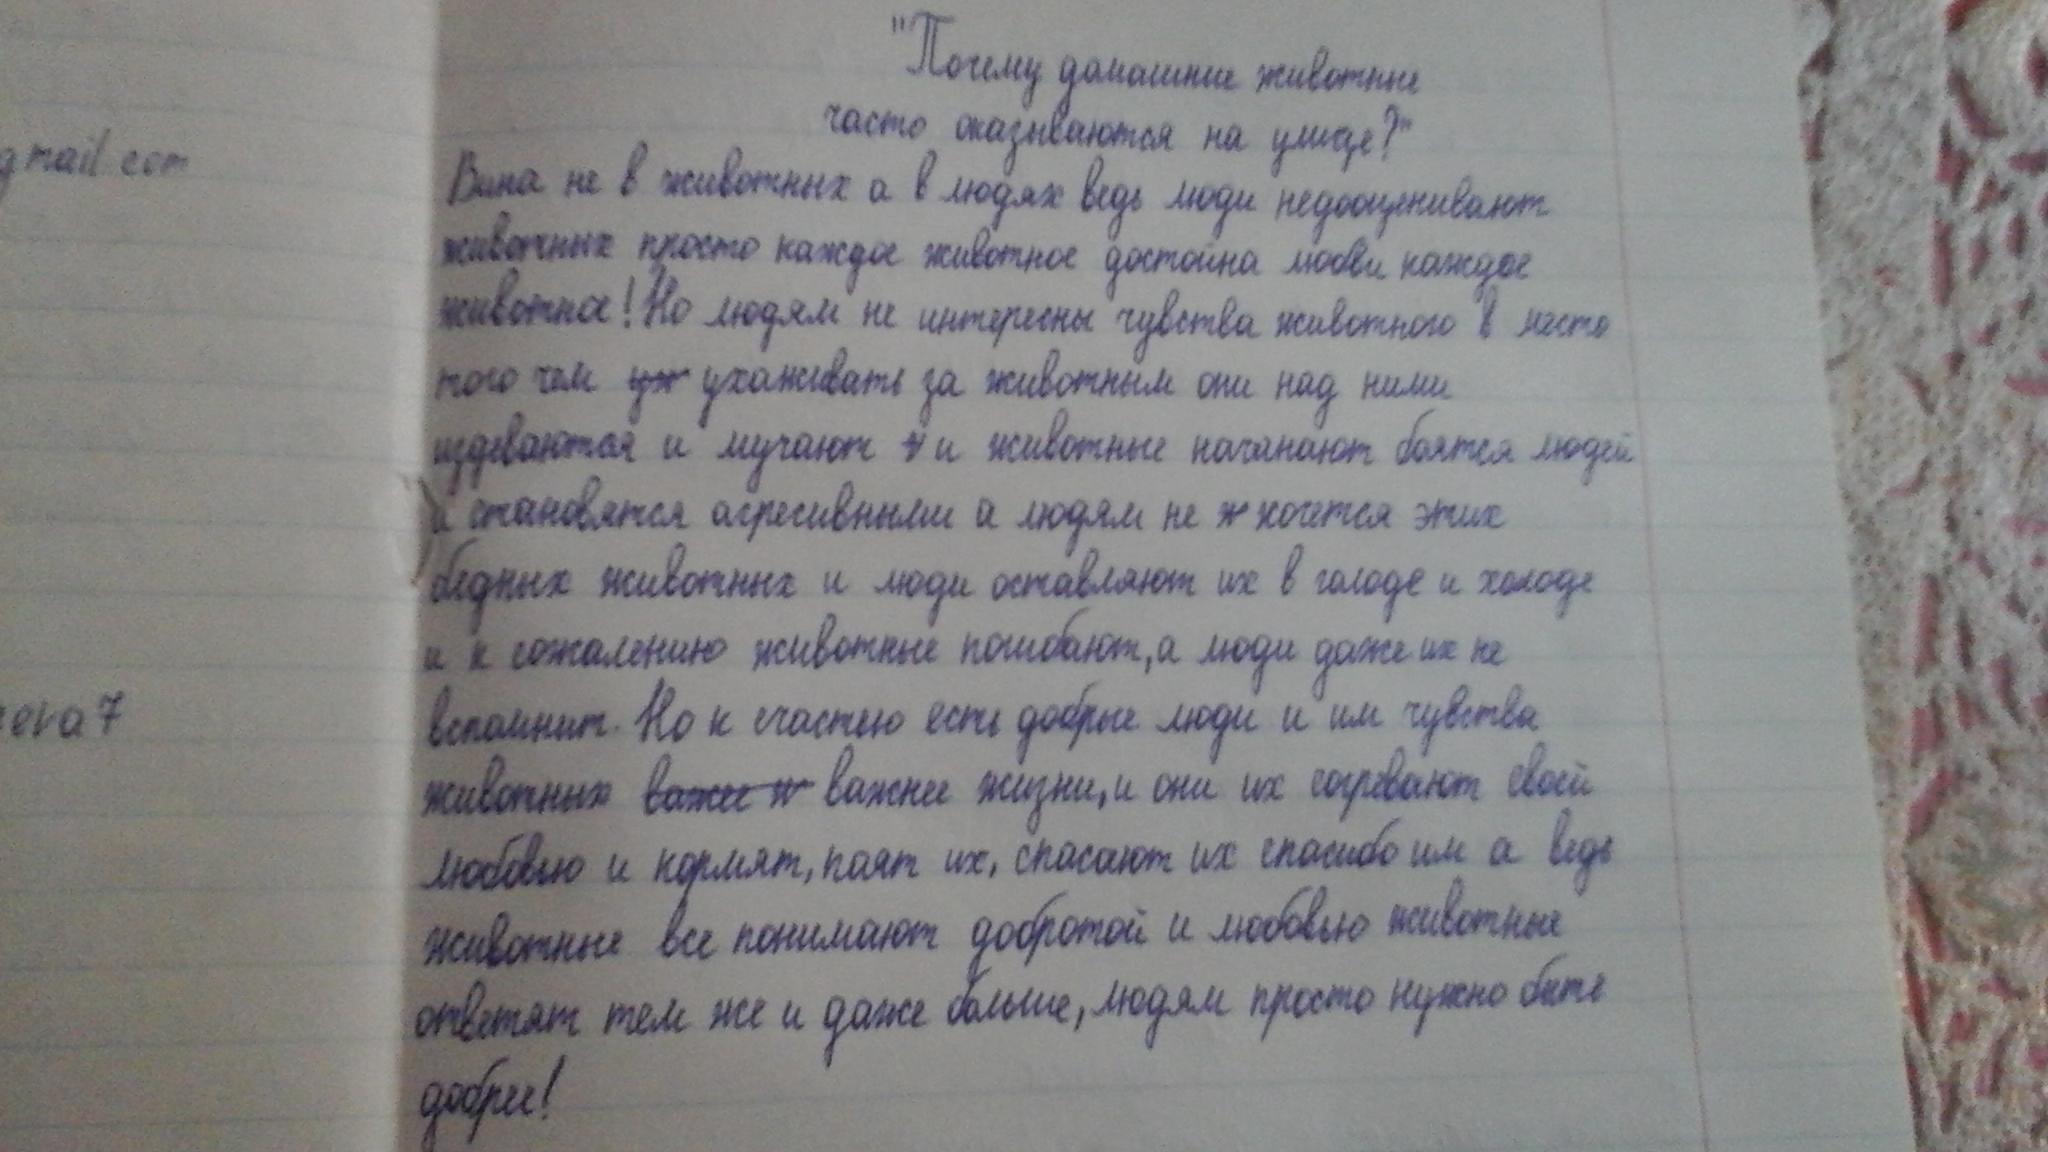 gmail.com
eva7
"Почему домашние животные
часто оказываются на улице?"
Вина не в животных а в людях ведь люди недооценивают
животных просто каждое животное достойна любви каждое
животное! Но людям не интересны чувства животного в место
того чем уж ухаживать за животным они над ними
издеваются и мучают и животные начинают боятся людей
и становятся агресивными а людям не ж хочется этих
бедных животных и люди оставляют их в голоде и холоде
и к сожалению животные погибают, а люди даже их не
вспомнит. Но к счастью есть добрые люди и им чувства
животных важее ж важнее жизни, и они их согревают своей
любовью и кормят, поят их, спасают их спасибо им а ведь
животные все понимают добротой и любовью животные
ответят тем же и даже больше, людям просто нужно быть
добрее!